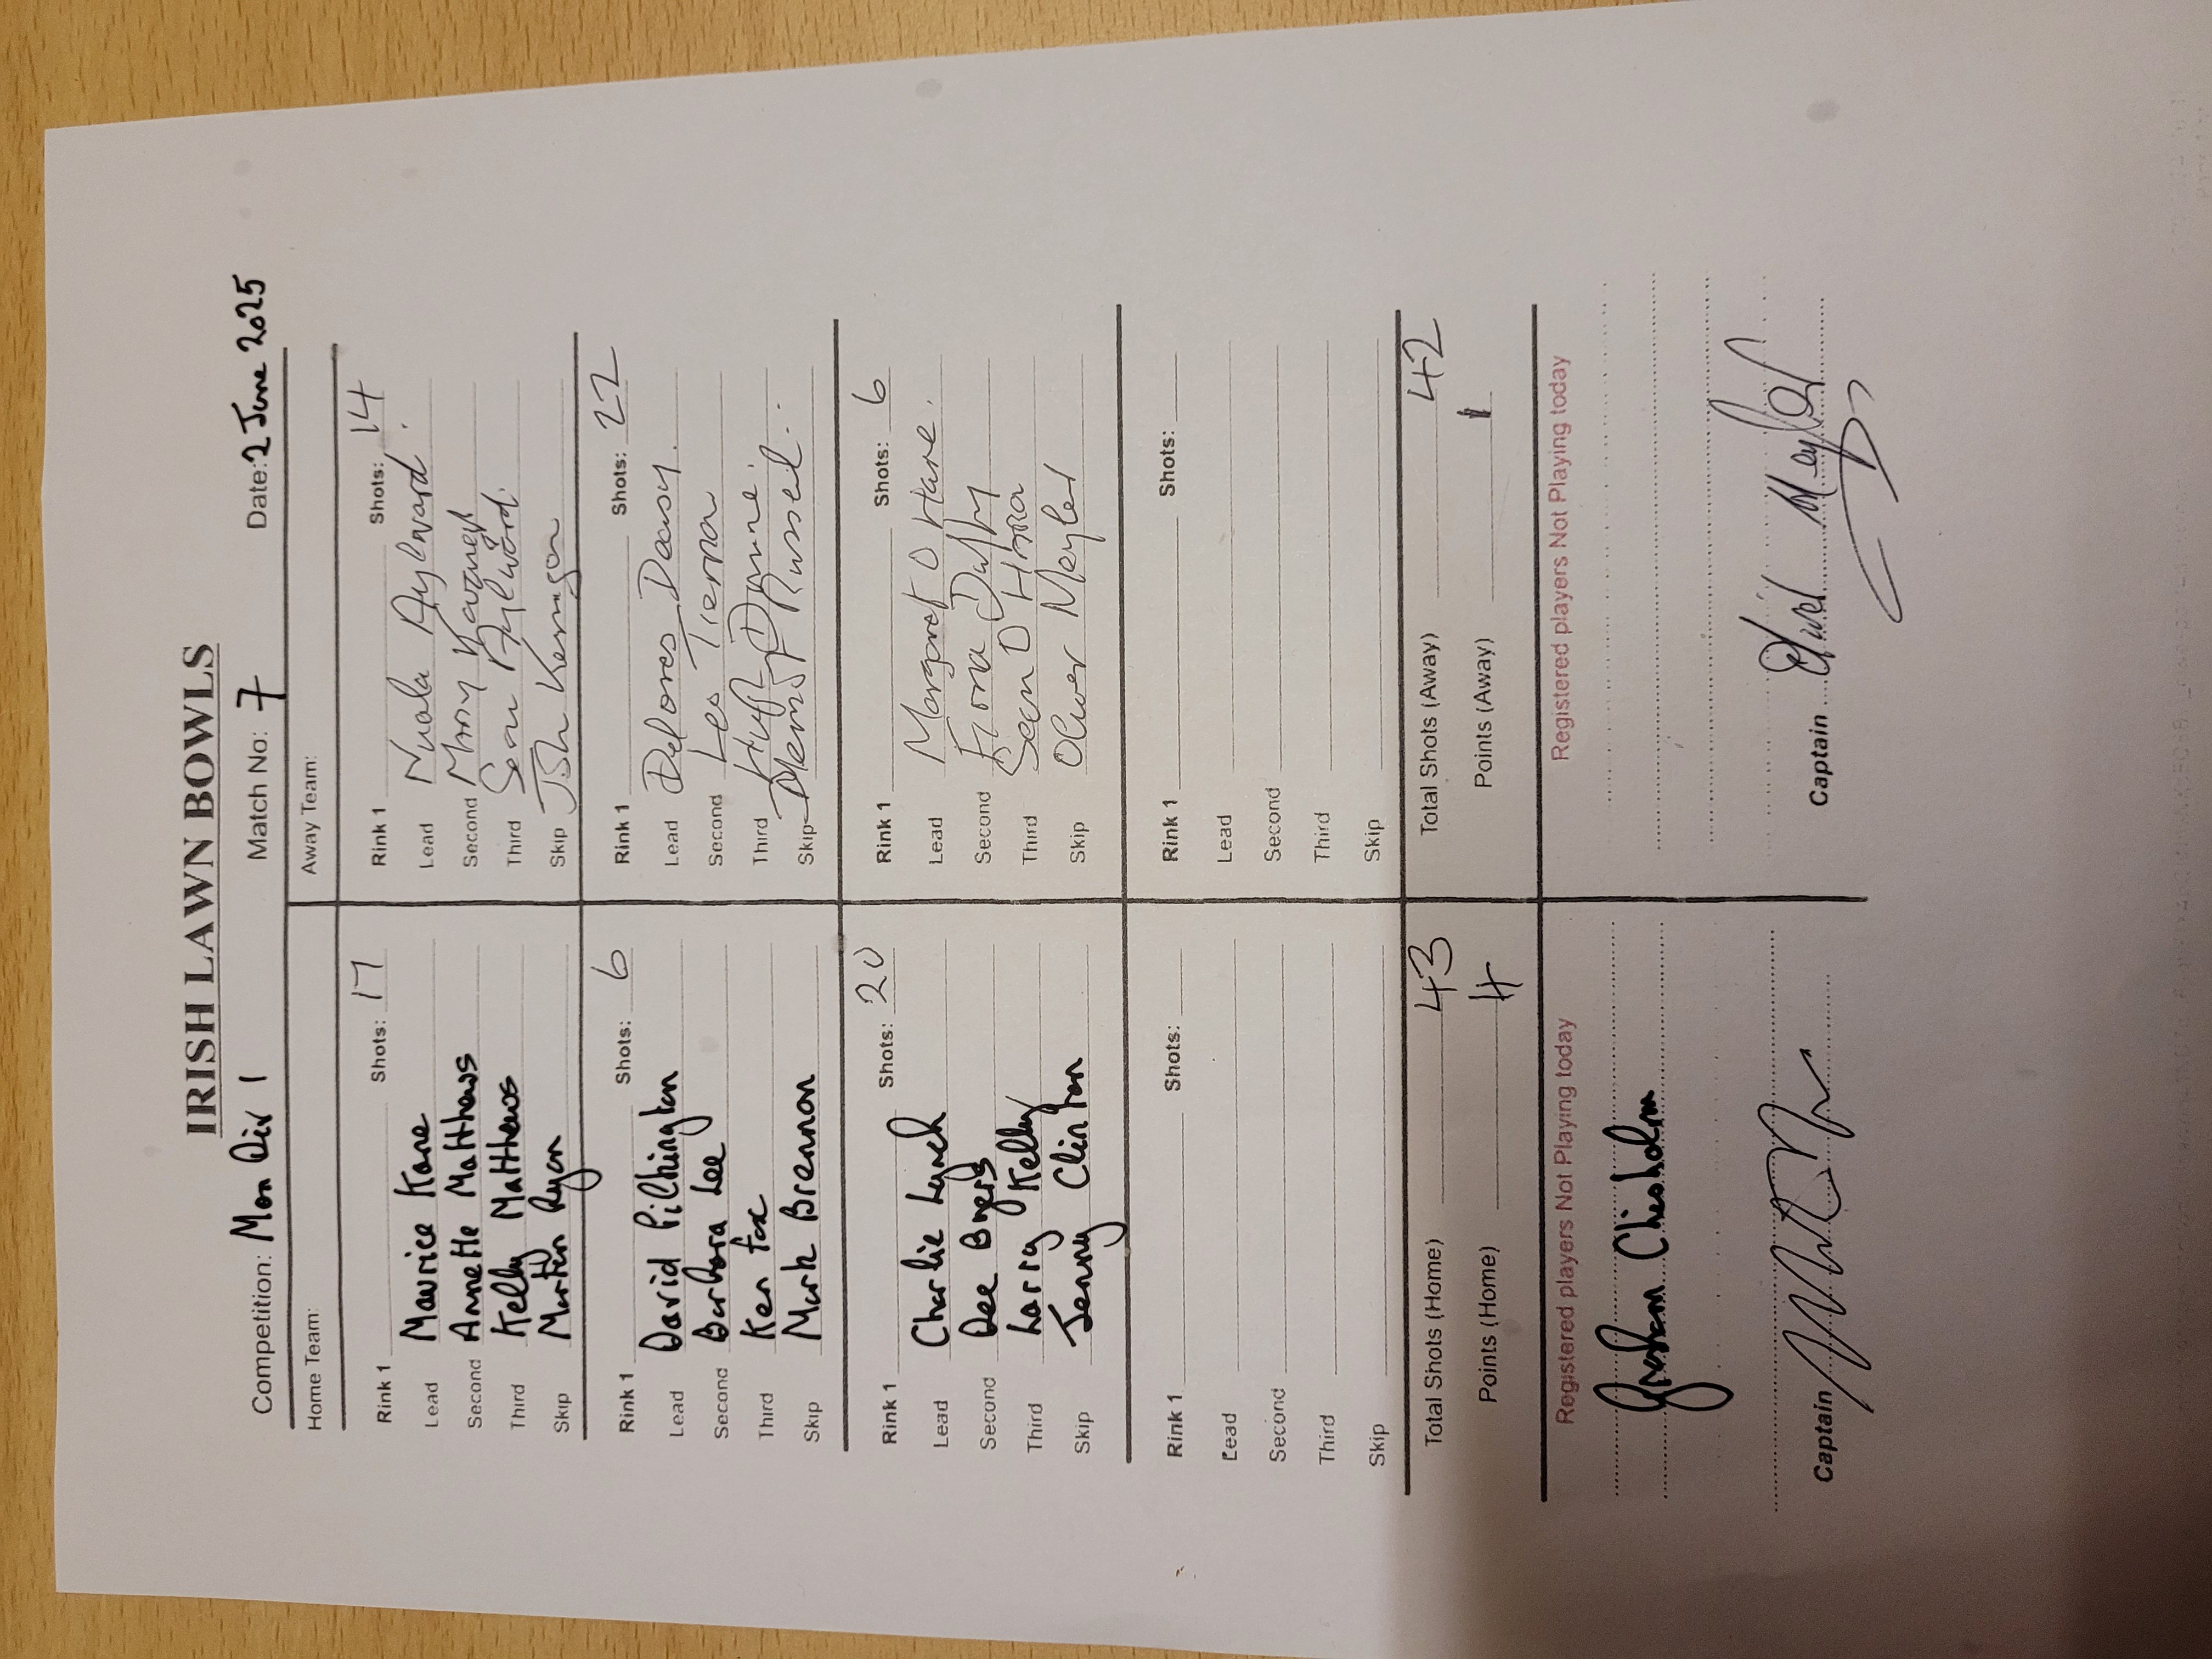 IRISH LAWN BOWLS
Competition: Mon Div 1 Match No: 7 Date: 2 June 2025
Home Team: Away Team:
Rink 1 Shots: 17 Rink 1 Shots: 14
Lead Maurice Kane Lead Nuala Aylward.
Second Annette Matthews Second Mary Kavanagh
Third Kelly Matthews Third Sean Aylward.
Skip Martin Ryan Skip John Kernigan
Rink 1 Shots: 6 Rink 1 Shots: 22
Lead David Pilchington Lead Delores Deasy.
Second Barbara Lee Second Les Tierna
Third Ken Fox Third
Skip Mark Brennan Skip Russel.
Rink 1 Shots: 20 Rink 1 Shots: 6
Lead Charlie Lynch Lead Margret O Hare.
Second Dee Second Fiona Duffy
Third Larry Kelly Third Sean O Hara
Skip Jenny Clinton Skip Oliver Meyler
Rink 1 Shots: Rink 1 Shots:
Lead Lead
Second Second
Third Third
Skip Skip
Total Shots (Home) 43 Total Shots (Away) 42
Points (Home) 4 Points (Away) 1
Registered players Not Playing today Registered players Not Playing today
Graham Chisholm
Captain Captain Oliver Meyler